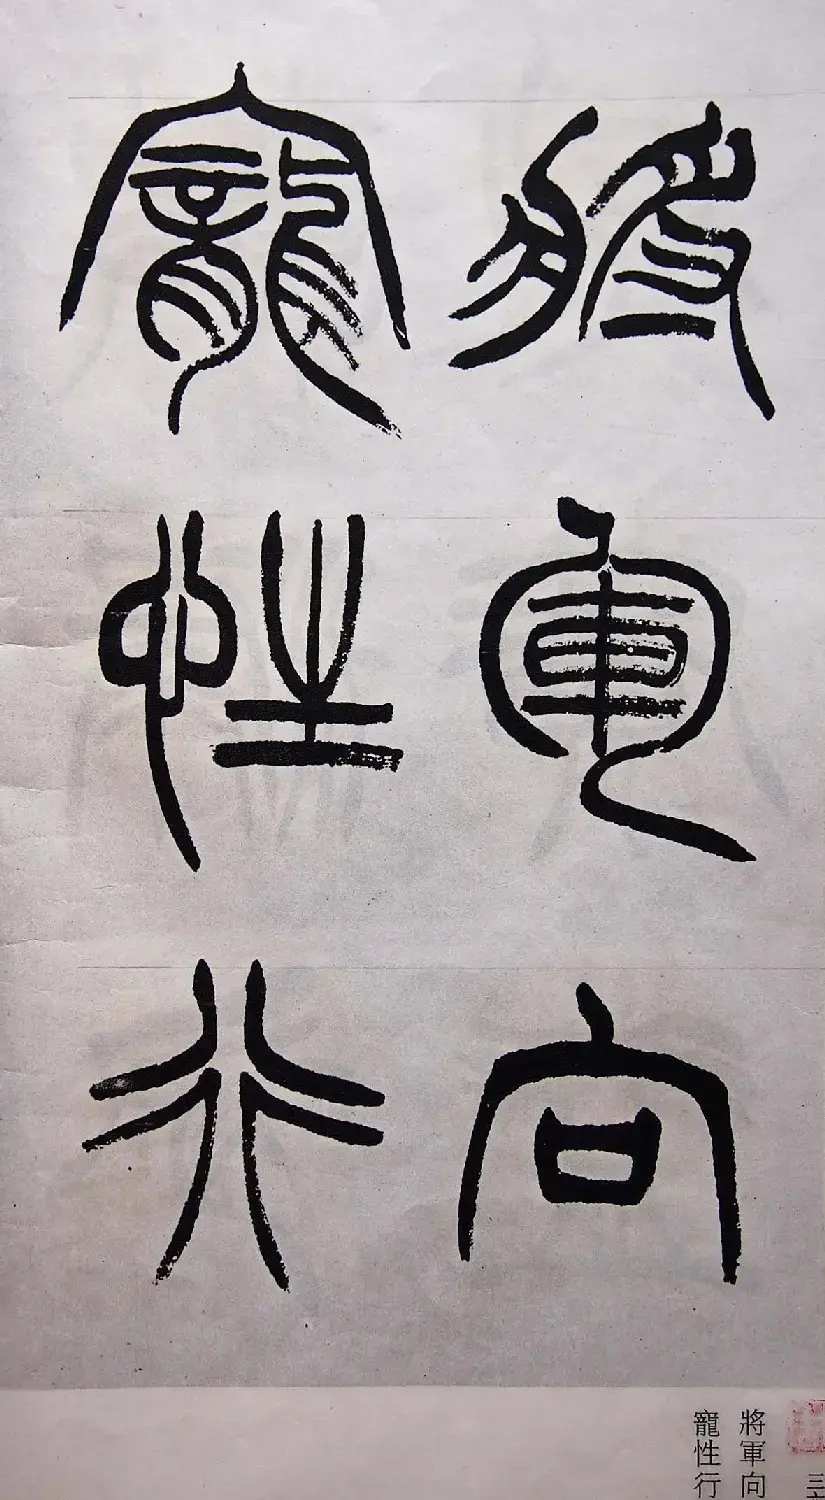 將軍向
寵性行
將軍向
寵性行